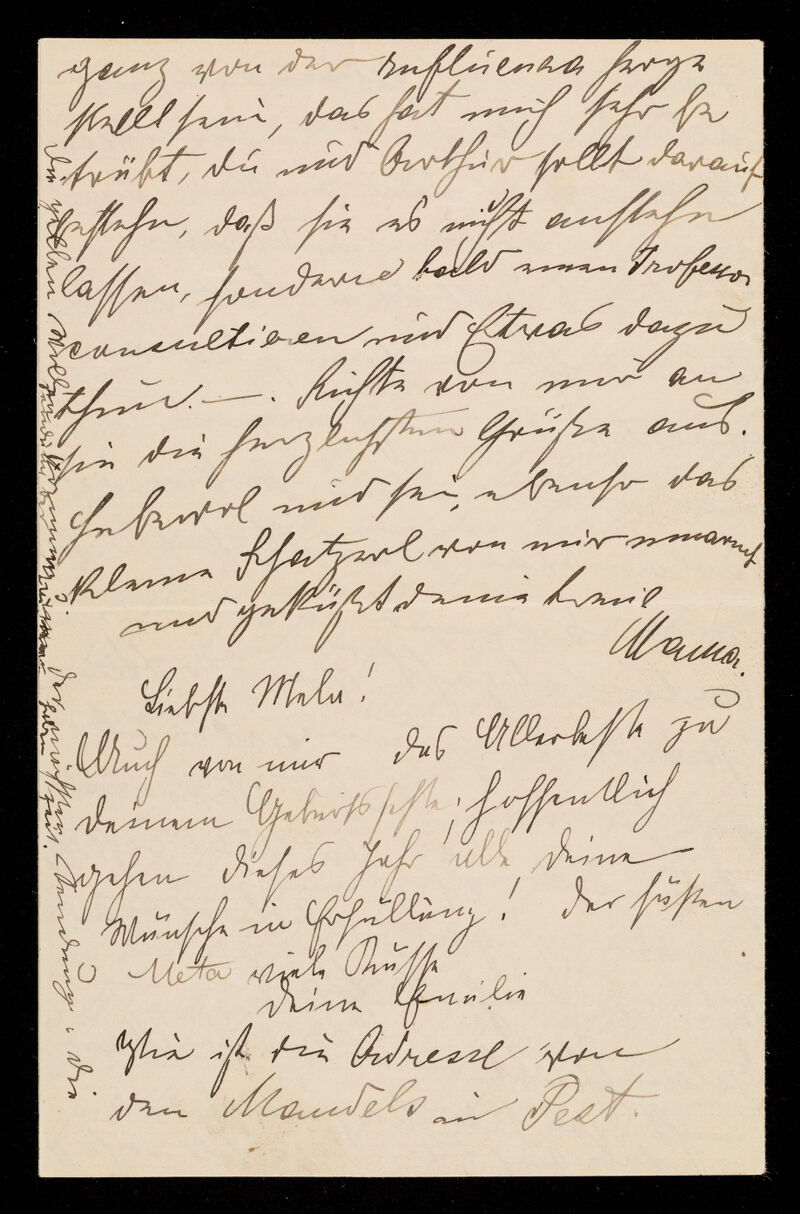 ganz von der Influenza herge
stellt sein, das hat mich sehr be
trübt, du und Arthur sollt darauf
bestehn, daß sie es nicht anstehn
lassen, sondern bald einen Professor
consultieren und Etwas dazu
thun. —. Richte von mir an
sie die herzlichsten Grüße aus.
Lebewol und sei, ebenso das
kleine Schatzerl von mir umarmt
und geküßt deine treue
Mama.
Liebste Mela!
Auch von mir das Allerbeste zu
deinem Geburtsfeste; hoffentlich
gehen dieses Jahr alle deine
Wünsche in Erfüllung! Der süßen
Meta viele Küsse
deine Emilie
Wie ist die Adresse von
den Mandels in Pest.
die gelben
der nächsten Sendung. Die